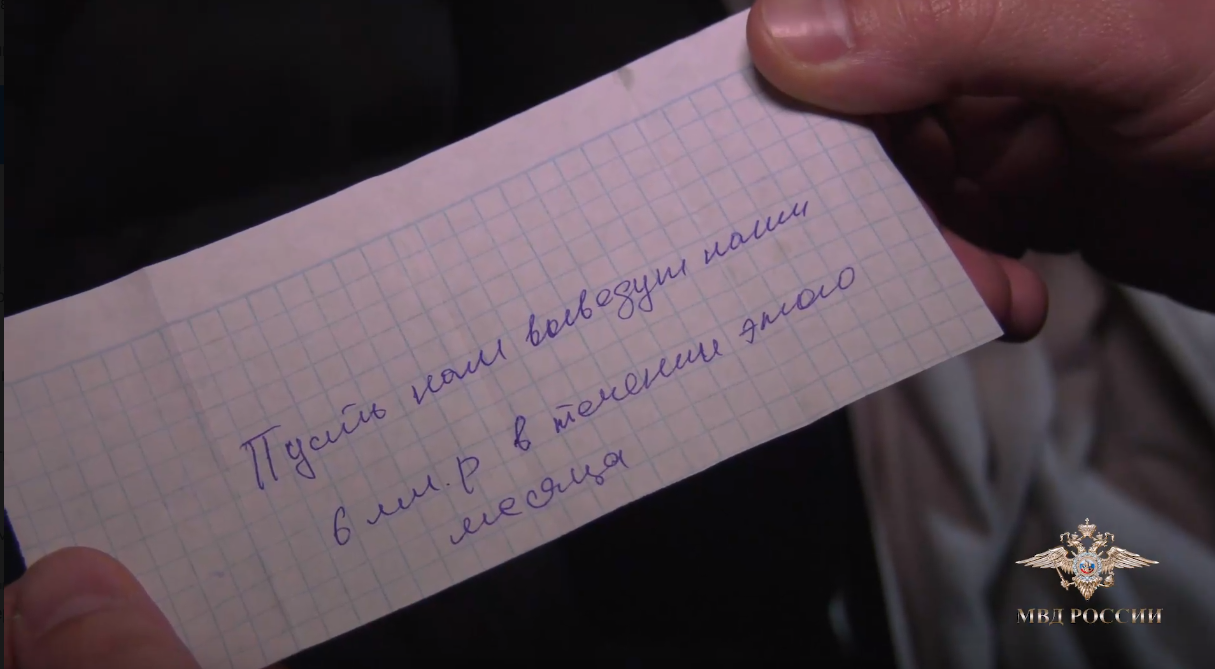 Пусть нам выведут наши
6 мл.р в течение этого
месяца
МВД РОССИИ